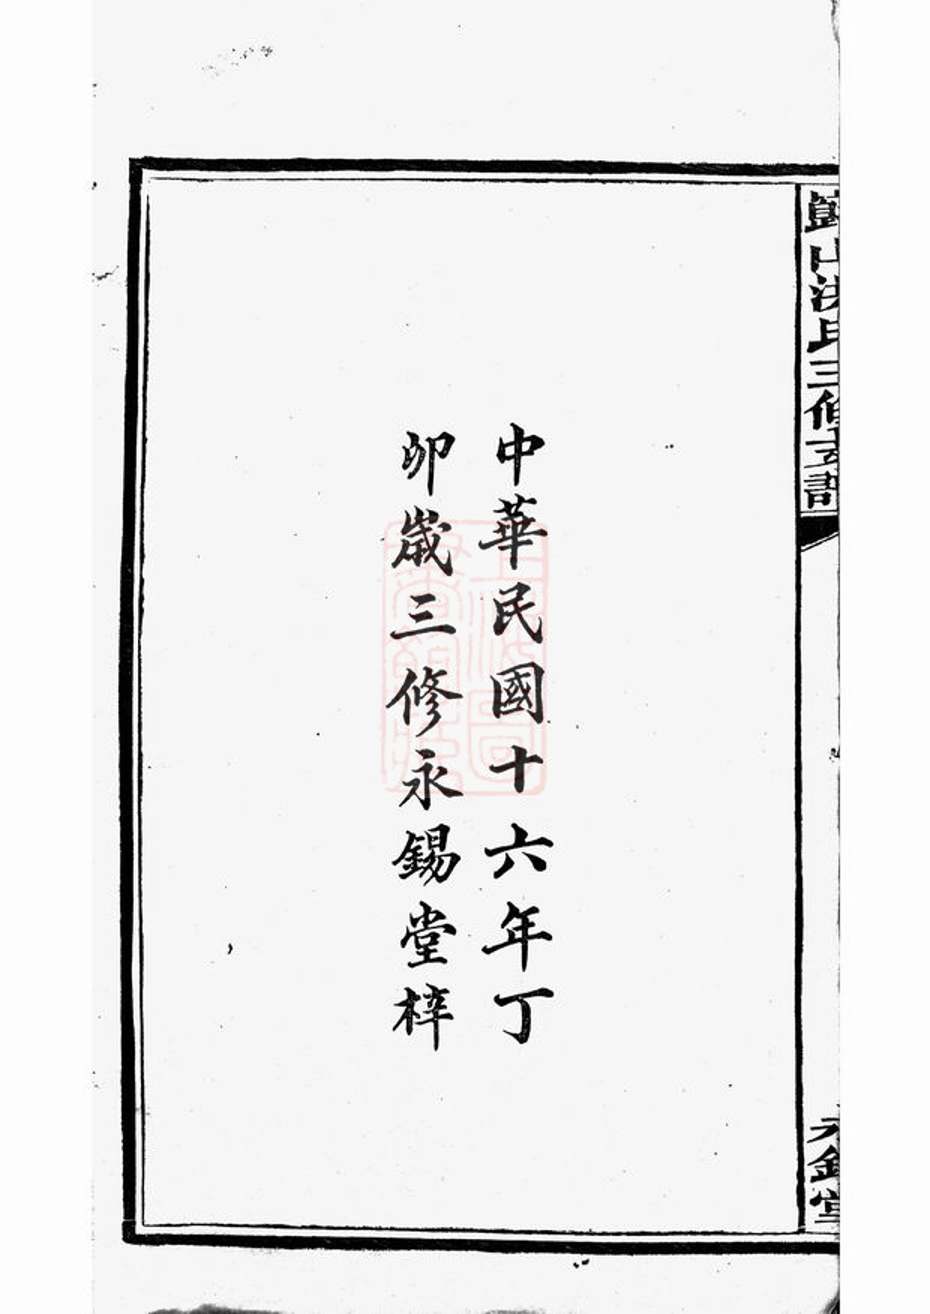 中華民國十六年丁
卯歲三修永錫堂梓
山洪氏三修支譜
永錫堂